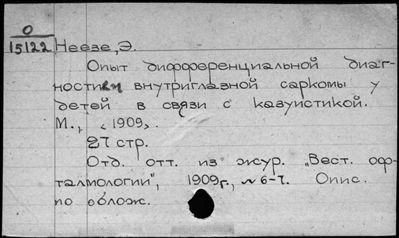 О
15122
Неезе, Э.
Опыт дифференциальной диаг-
ностики внутриглазной саркомы у
детей в связи с казуистикой.
М., <1909>.
27 стр.
Отд. отт. из жур. "Вест. оф-
талмологии", 1909г., № 6-7. Опис.
по облож.